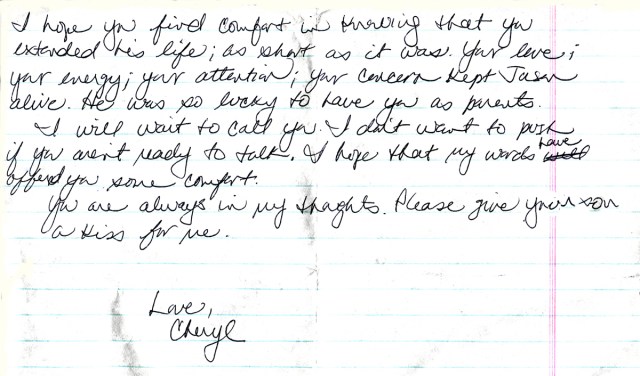 I hope you find comfort in knowing that you
extended his life; as short as it was. Your love;
your energy; your attention; your concern kept Jason
alive. He was so lucky to have you as parents.
I will wait to call you. I don't want to push
if you aren't ready to talk. I hope that my words have
offerd you some comfort.
You are always in my thoghts. Please give your son
a kiss for me.
Love,
Cheryl